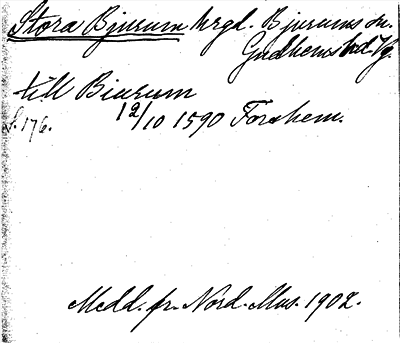 Stora Bjurum hrgd. Bjurums sn.
Gudhems hd. Vg.
till Biurum
12/10 1590 Forshem.
S. 176.
Medd. fr. Nord. Mus. 1902.